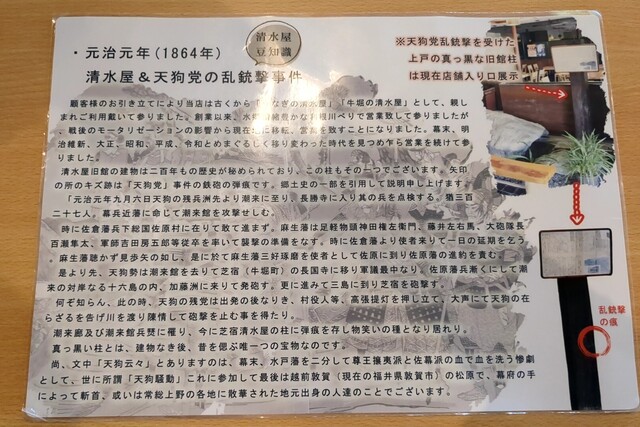 清水屋
豆知識
・元治元年(1864年)
清水屋&天狗党の乱銃撃事件
※天狗党乱銃撃を受けた
上戸の真っ黒な旧館柱
は現在店舗入り口展示
顧客様のお引き立てにより当店は古くから「うなぎの清水屋」「牛堀の清水屋」として、親し
まれご利用戴いて参りました。創業以来、水郷情緒豊かな利根川べりで営業致して参りましたが
、戦後のモータリゼーションの影響から現在地に移転、営業を致すことになりました。幕末、明
治維新、大正、昭和、平成、令和とめまぐるしく移り変わった時代を見つめ乍ら営業を続けて参
りました。
清水屋旧館の建物は二百年もの歴史が秘められており、この柱もその一つでございます。矢印
の所のキズ跡は「天狗党」事件の鉄砲の弾痕です。郷土史の一部を引用して説明申し上げます。
「元治元年九月六日天狗の残兵洲先より潮来に至り、長勝寺に入り其の兵を点検する。猶三百
二十七人。幕兵近藩に命じて潮来館を攻撃せしむ。
時に佐倉藩兵下総国佐原村に在りて敢て進まず。麻生藩は足軽物頭神田権左衛門、藤井左右馬、大砲隊長
百瀬隼太、軍師吉田房五郎等従卒を率いて襲撃の準備をなす。時に佐倉藩より使者来りて一日の延期を乞う
。麻生藩聴かず見歩矢の如し。是に於て麻生藩三好琢磨を使者として佐原に到り佐原藩の進約を責む。
是より先、天狗勢は潮来館を去りて芝宿(牛堀町)の長国寺に移り軍議最中なり。佐原藩兵漸くにして潮
来の対岸なる十六島の内、加藤洲に来りて発砲す。更に進みて三島に到り芝宿を砲撃す。
何ぞ知らん、此の時、天狗の残党は出発の後なりき、村役人等、高張提灯を押し立て、大声にて天狗の在
らざるを告げ川を渡り陳情して砲撃を止む事を得たり。
潮来廊及び潮来館兵燹に罹り、今に芝宿清水屋の柱に弾痕を存し物笑いの種となり居れり。
真っ黒い柱とは、建物なき後、昔を偲ぶ唯一つの宝物なのです。
尚、文中「天狗云々」とありますのは、幕末、水戸藩を二分して尊王攘夷派と佐幕派の血で血を洗う惨劇
として、世に所謂「天狗騒動」これに参加して最後は越前敦賀(現在の福井県敦賀市)の松原で、幕府の手
によって斬首、或いは常総上野の各地に散華された地元出身の人達のことでございます。
乱銃撃
の痕